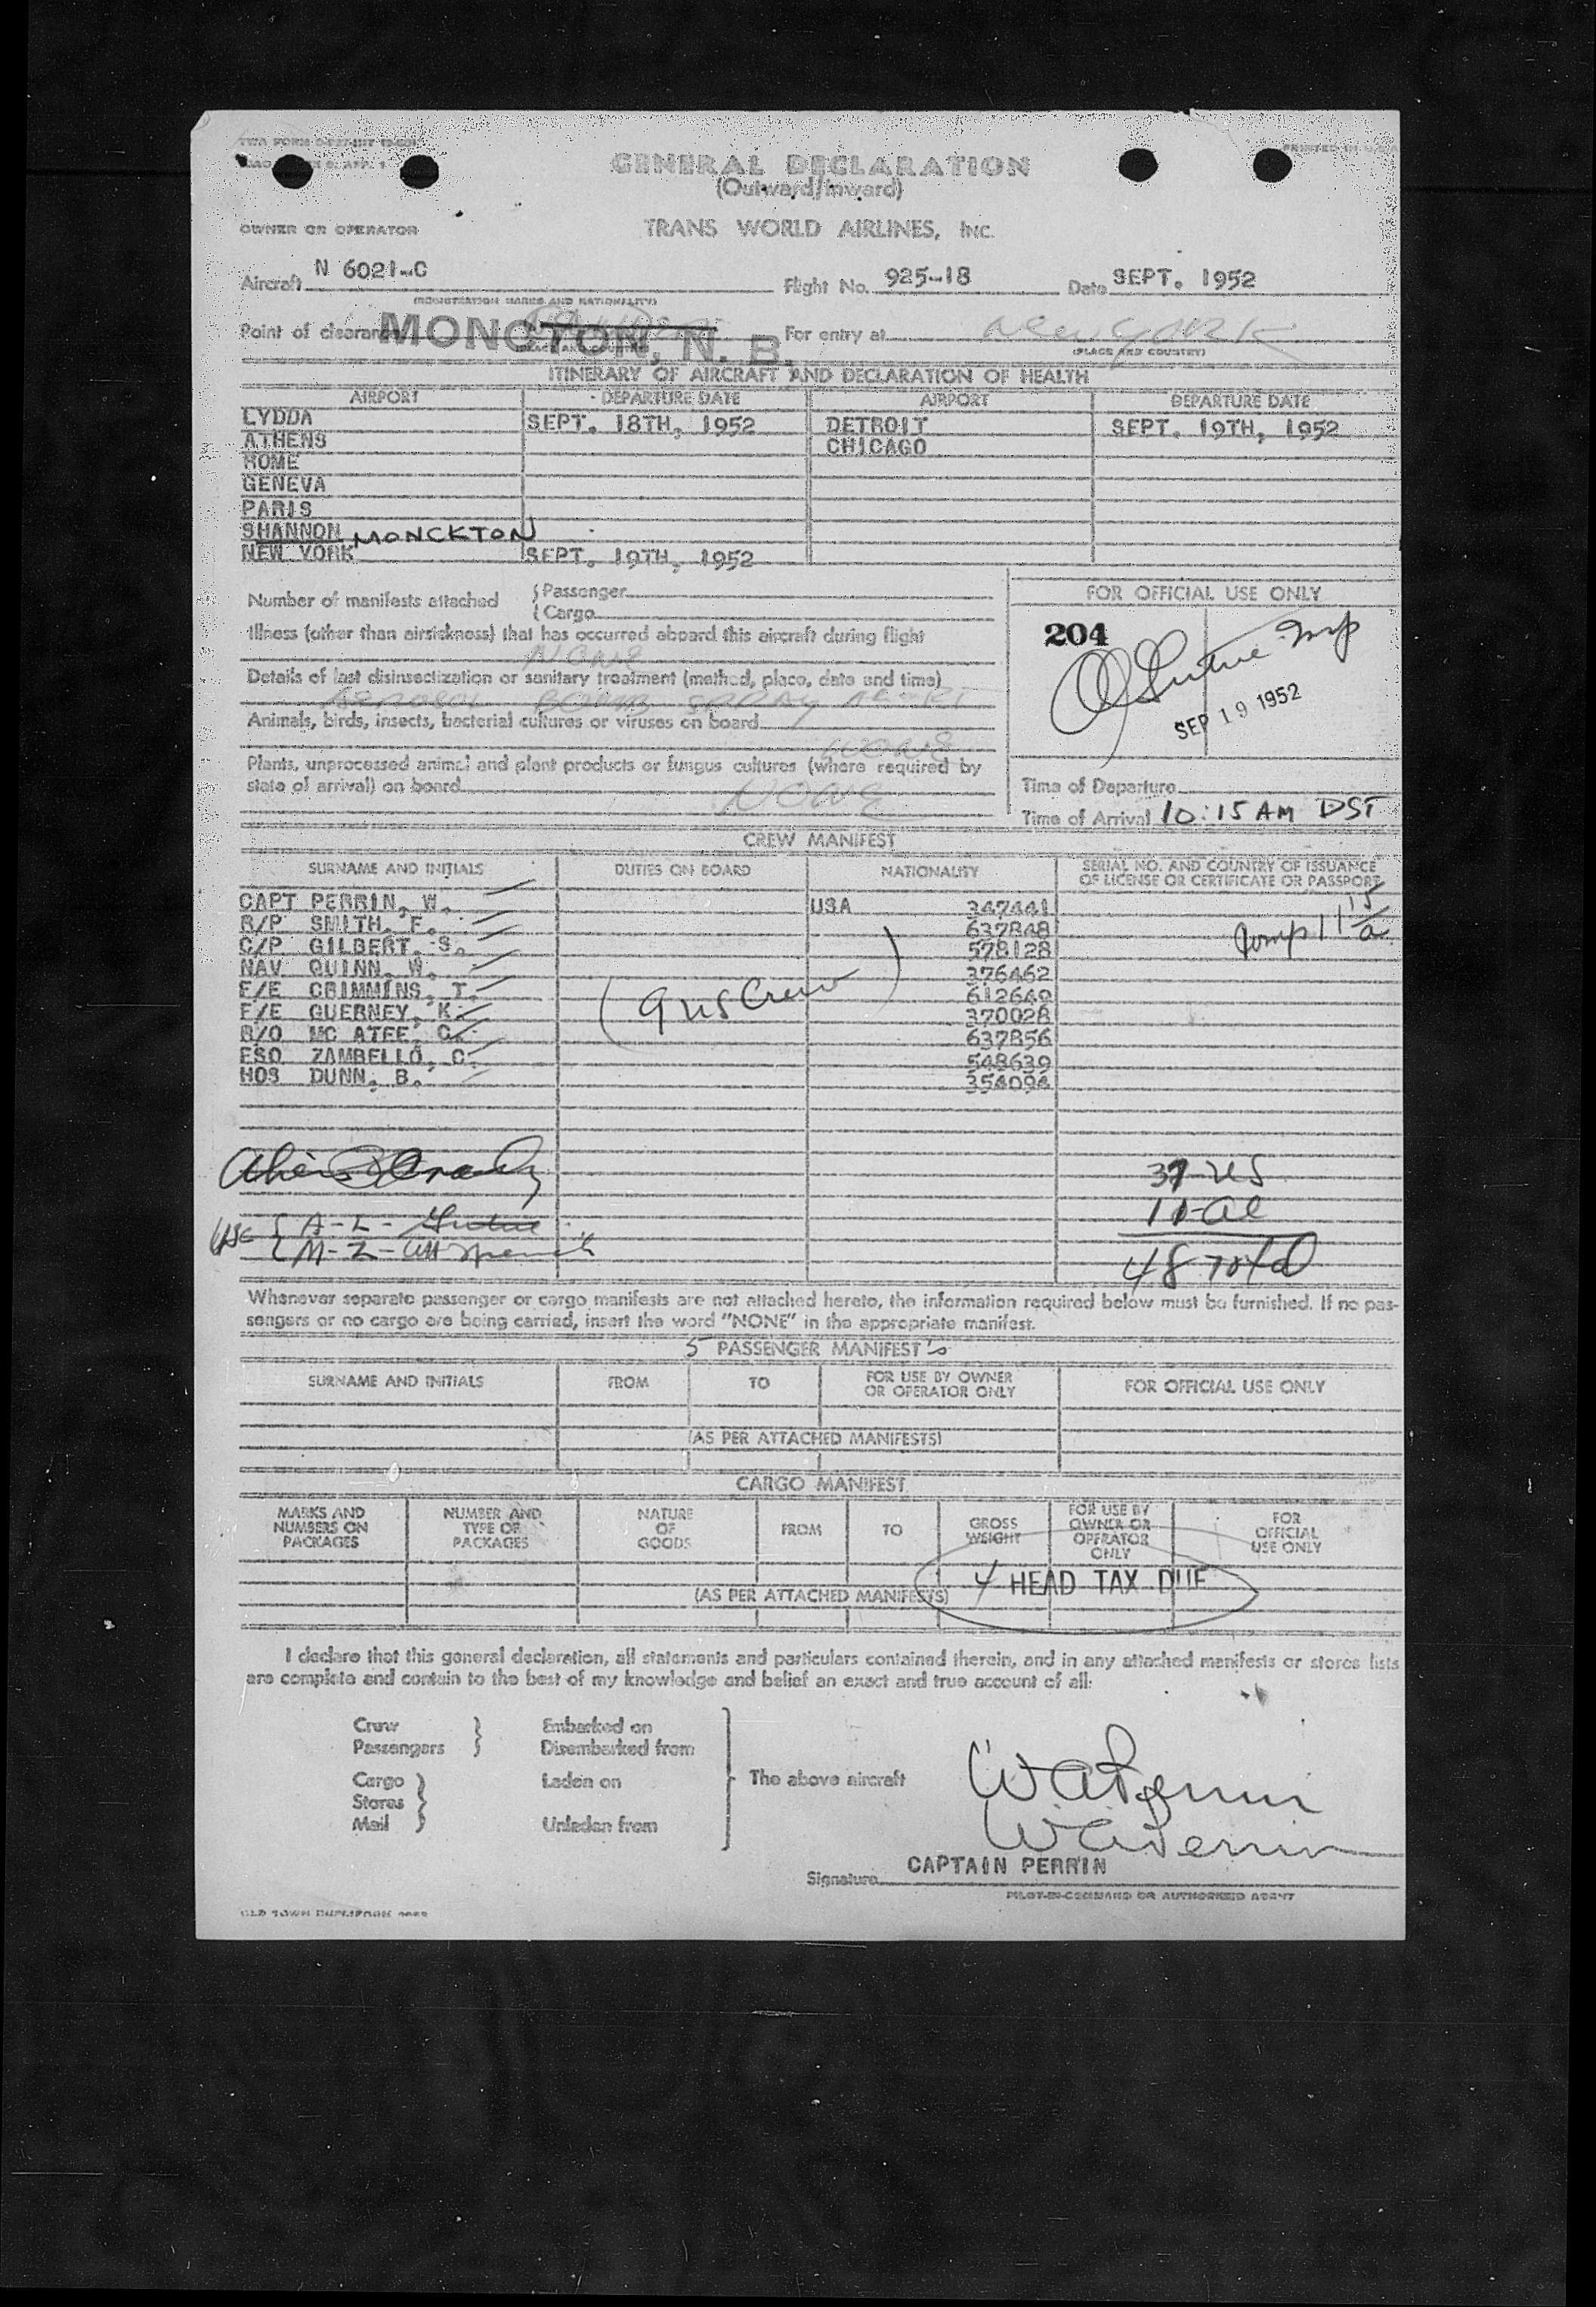 GENERAL DECLARATION
(Outward/Inward)
OWNER OR OPERATOR TRANS WORLD AIRLINES, INC.
Aircraft N 6021-C Flight No. 925-18 Date SEPT. 1952
(REGISTRATION MARKS AND NATIONALITY)
Point of clearance MONCTON, N. B. For entry at New York
(PLACE AND COUNTRY) (PLACE AND COUNTRY)
ITINERARY OF AIRCRAFT AND DECLARATION OF HEALTH
AIRPORT DEPARTURE DATE AIRPORT DEPARTURE DATE
LYDDA SEPT. 18TH, 1952 DETROIT SEPT. 19TH, 1952
ATHENS CHICAGO
ROME
GENEVA
PARIS
SHANNON MONCKTON
NEW YORK SEPT. 19TH, 1952
Number of manifests attached { Passenger
{ Cargo
FOR OFFICIAL USE ONLY
204
SEP 19 1952
Illness (other than airsickness) that has occurred aboard this aircraft during flight
NONE
Details of last disinsectization or sanitary treatment (method, place, date and time)
AEROSOL BOMB SPRAY
Animals, birds, insects, bacterial cultures or viruses on board
NONE
Plants, unprocessed animal and plant products or fungus cultures (where required by
state of arrival) on board
NONE
Time of Departure
Time of Arrival 10:15 AM DST
CREW MANIFEST
SURNAME AND INITIALS DUTIES ON BOARD NATIONALITY SERIAL NO. AND COUNTRY OF ISSUANCE
OF LICENSE OR CERTIFICATE OR PASSPORT
CAPT PERRIN, W. USA 347441
R/P SMITH, F. 637848
C/P GILBERT, S. 578128
NAV QUINN, W. 376462
F/E CRIMMINS, T. 612649
F/E GUERNEY, K. 370028
R/O MC ATEE, C. 637856
ESO ZAMBELLO, C. 548639
HOS DUNN, B. 354094
(9 US Crew)
Comp 11 15/a
37 US
11 - al
48 Total
A - L -
M - Z -
Whenever separate passenger or cargo manifests are not attached hereto, the information required below must be furnished. If no pas-
sengers or no cargo are being carried, insert the word "NONE" in the appropriate manifest.
5 PASSENGER MANIFEST's
SURNAME AND INITIALS FROM TO FOR USE BY OWNER OR OPERATOR ONLY FOR OFFICIAL USE ONLY
(AS PER ATTACHED MANIFESTS)
CARGO MANIFEST
MARKS AND NUMBERS ON PACKAGES NUMBER AND TYPE OF PACKAGES NATURE OF GOODS FROM TO GROSS WEIGHT FOR USE BY OWNER OR OPERATOR ONLY FOR OFFICIAL USE ONLY
4 HEAD TAX DUE
(AS PER ATTACHED MANIFESTS)
I declare that this general declaration, all statements and particulars contained therein, and in any attached manifests or stores lists
are complete and contain to the best of my knowledge and belief an exact and true account of all:
Crew } Embarked on
Passengers } Disembarked from
Cargo } Laden on The above aircraft
Stores
Mail } Unladen from
WA Perrin
WA Perrin
CAPTAIN PERRIN
Signature
PILOT-IN-COMMAND OR AUTHORIZED AGENT